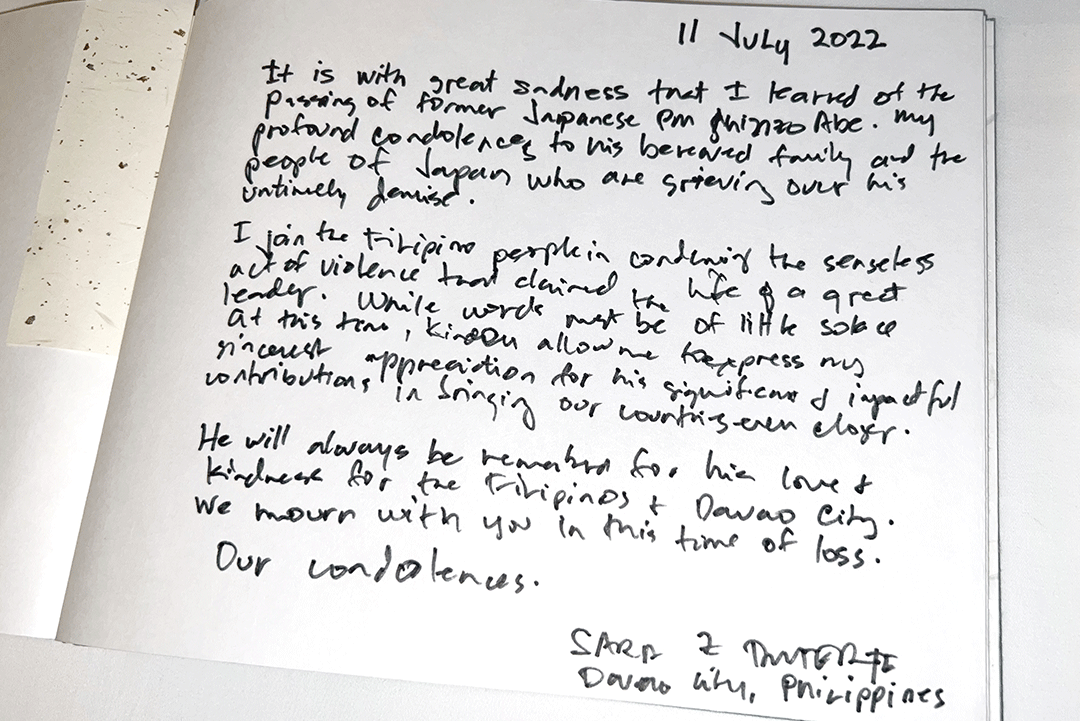 11 July 2022
It is with great sadness that I learned of the
passing of former Japanese PM Shinzo Abe. My
profound condolences to his bereaved family and the
people of Japan who are grieving over his
untimely demise.
I join the Filipino people in condemning the senseless
act of violence that claimed the life of a great
leader. While words must be of little solace
at this time, kindly allow me to express my
sincerest appreciation for his significant & impactful
contributions in bringing our countries even closer.
He will always be remembered for his love &
kindness for the Filipinos & Davao City.
We mourn with you in this time of loss.
Our condolences.
SARA Z DUTERTE
Davao City, Philippines